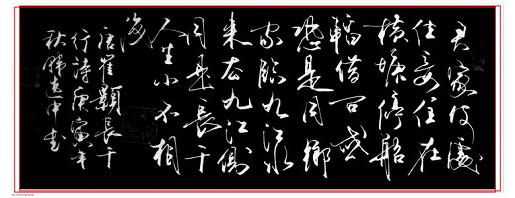 君家何處
住妾住在
橫塘停船
暫借問或
恐是同鄉
家臨九江水
來去九江側
同是長干
人生小不相
識
唐崔顥長干
行詩庚寅年
秋書